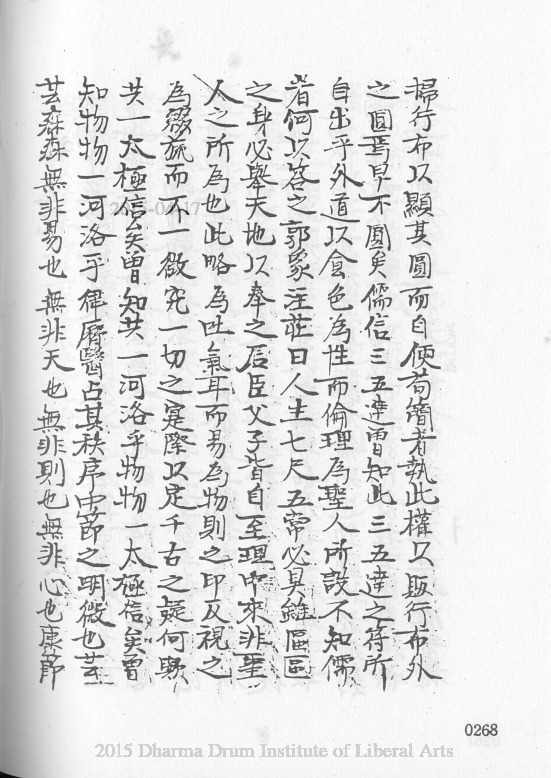 掃行布以顯其圓而自便苟簡者執此權以販行布外
之圓焉早不圓矣儒信三五達曾知此三五達之符所
自出乎外道以食色為性而倫理為聖人所設不知儒
者何以答之郭象注莊曰人生七尺五常必具雖區區
之身必舉天地以奉之君臣父子皆自至理中來非聖
人之所為也此略為吐氣耳而易為物則之印反視之
為綴旒而不一徵究一切之寔際以定千古之疑何歟
共一太極信矣曾知共一河洛乎物物一太極信矣曾
知物物一河洛乎律曆醫占其秩序中節之明徵也芸
芸森森無非易也無非天也無非則也無非心也康節
0268
2015 Dharma Drum Institute of Liberal Arts